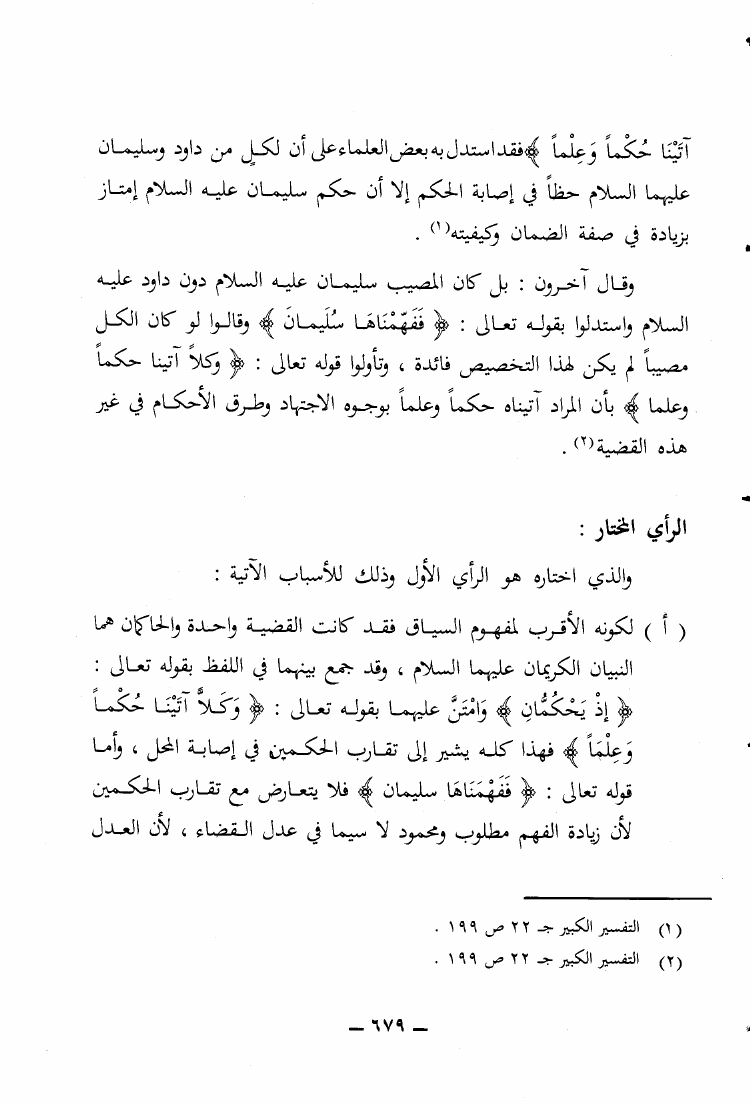 آتَيْنَا حُكْماً وَعِلْماً ﴾ فقد استدل به بعض العلماء على أن لكل من داود وسليمان
عليهما السلام حظاً في إصابة الحكم إلا أن حكم سليمان عليه السلام إمتاز
بزيادة في صفة الضمان وكيفيته(١) .
وقال آخرون : بل كان المصيب سليمان عليه السلام دون داود عليه
السلام واستدلوا بقوله تعالى : ﴿ فَفَهَّمْنَاهَا سُلَيمانَ ﴾ وقالوا لو كان الكل
مصيباً لم يكن لهذا التخصيص فائدة ، وتأولوا قوله تعالى : ﴿ وكلاً آتينا حكماً
وعلما ﴾ بأن المراد آتيناه حكماً وعلماً بوجوه الاجتهاد وطرق الأحكام في غير
هذه القضية(٢) .
الرأي المختار :
والذي اختاره هو الرأي الأول وذلك للأسباب الآتية :
( أ ) لكونه الأقرب لمفهوم السياق فقد كانت القضية واحدة والحاكمان هما
النبيان الكريمان عليهما السلام ، وقد جمع بينهما في اللفظ بقوله تعالى :
﴿ إِذْ يَحْكُمَّانِ ﴾ وَامْتَنَّ عليهما بقوله تعالى : ﴿ وَكَلاًّ آتَيْنَا حُكْماً
وَعِلْمَاً ﴾ فهذا كله يشير إلى تقارب الحكمين في إصابة المحل ، وأما
قوله تعالى : ﴿ فَفَهْمَنَاهَا سليمان ﴾ فلا يتعارض مع تقارب الحكمين
لأن زيادة الفهم مطلوب ومحمود لا سيما في عدل القضاء ، لأن العدل
(١) التفسير الكبير جـ ٢٢ ص ١٩٩ .
(٢) التفسير الكبير جـ ٢٢ ص ١٩٩ .
– ٦٧٩ –